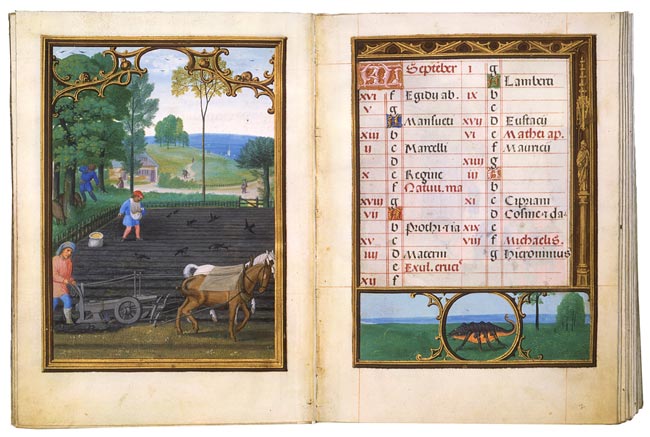 KL Septēber
xvi f Egidij ab.
v g
A Mansueti
xiii b
ii c Marcelli
d
x e Regine
f Natiui. ma
xviii g
vii A
b Prothi ⁊ ia
xv c
iiii d Materni
e Exul. cruc
xii f
i g
A Lamberti
ix b
c
xvii d Eustacii
vi e Mathei ap.
f Mauricii
g
iii A
b
xi c Cipriani
d Cosme ⁊ da
xix e
viii f Michaelis
g Hieronimus